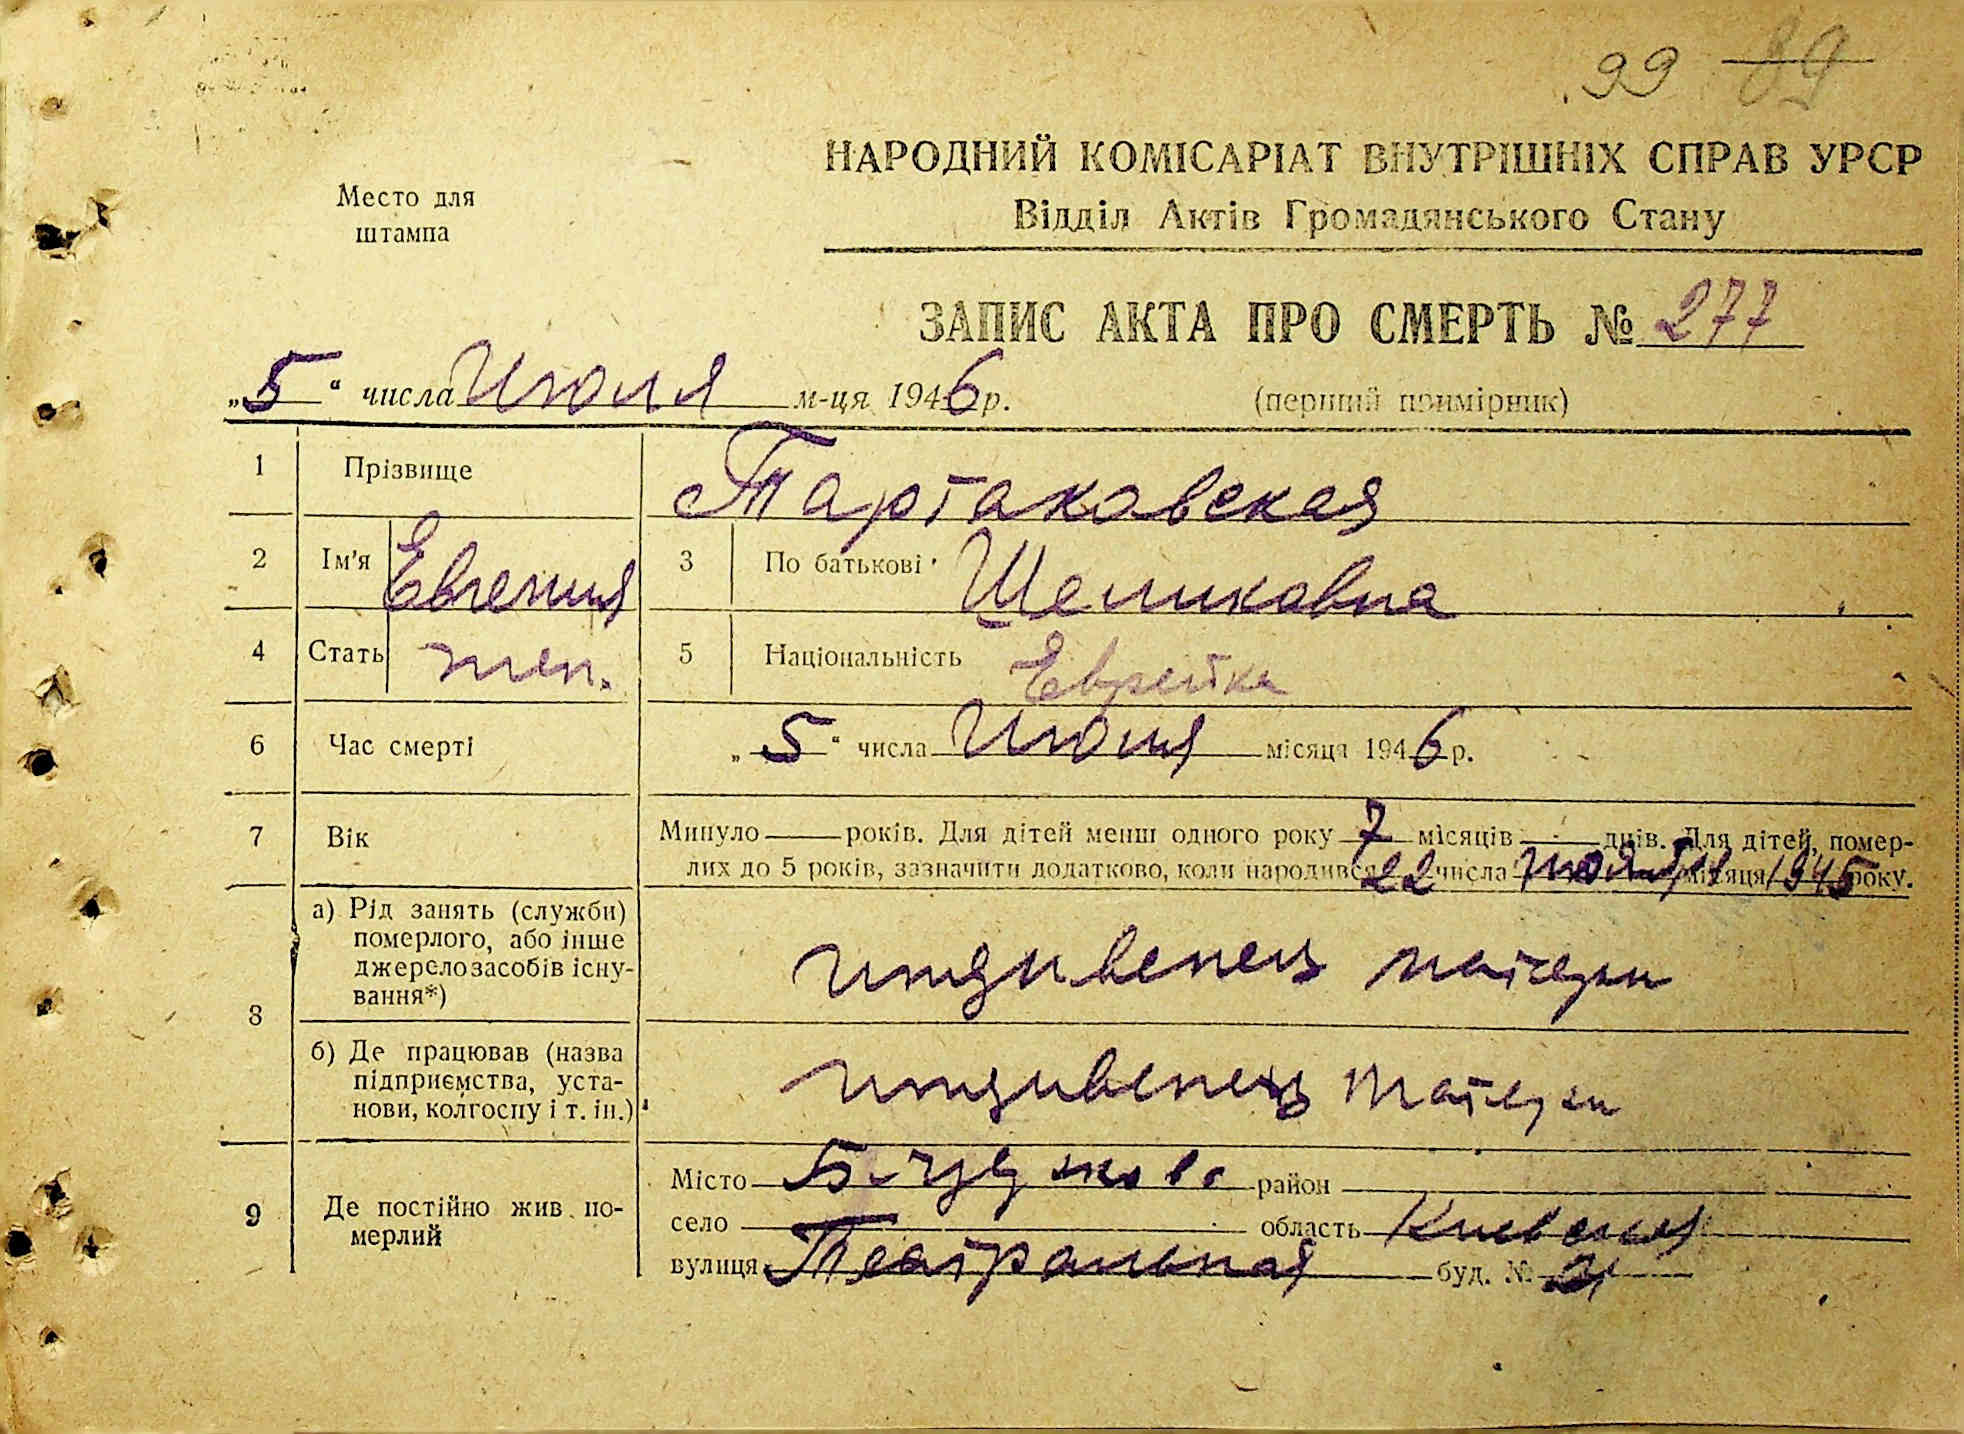 99 89
НАРОДНИЙ КОМІСАРІАТ ВНУТРІШНІХ СПРАВ УРСР
Відділ Актів Громадянського Стану
Место для
штампа
ЗАПИС АКТА ПРО СМЕРТЬ № 277
„5“ числа Июля м-ця 1946 р.
(перший примірник)
1 Прізвище Тартаковская
2 Ім'я Евгения 3 По батькові Шеликовна
4 Стать жен. 5 Національність Еврейка
6 Час смерті „5“ числа Июля місяця 1946 р.
7 Вік Минуло років. Для дітей менш одного року 7 місяців - днів. Для дітей, помер-
лих до 5 років, зазначити додатково, коли народився 22 числа ноября місяця 1945 року.
8 а) Рід занять (служби)
померлого, або інше
джерело засобів існу-
вання*)
иждивенец матери
б) Де працював (назва
підприємства, уста-
нови, колгоспу і т. ін.)
иждивенец матери
9 Де постійно жив по-
мерлий
Місто район
село область Киевская
вулиця Театральная буд. №